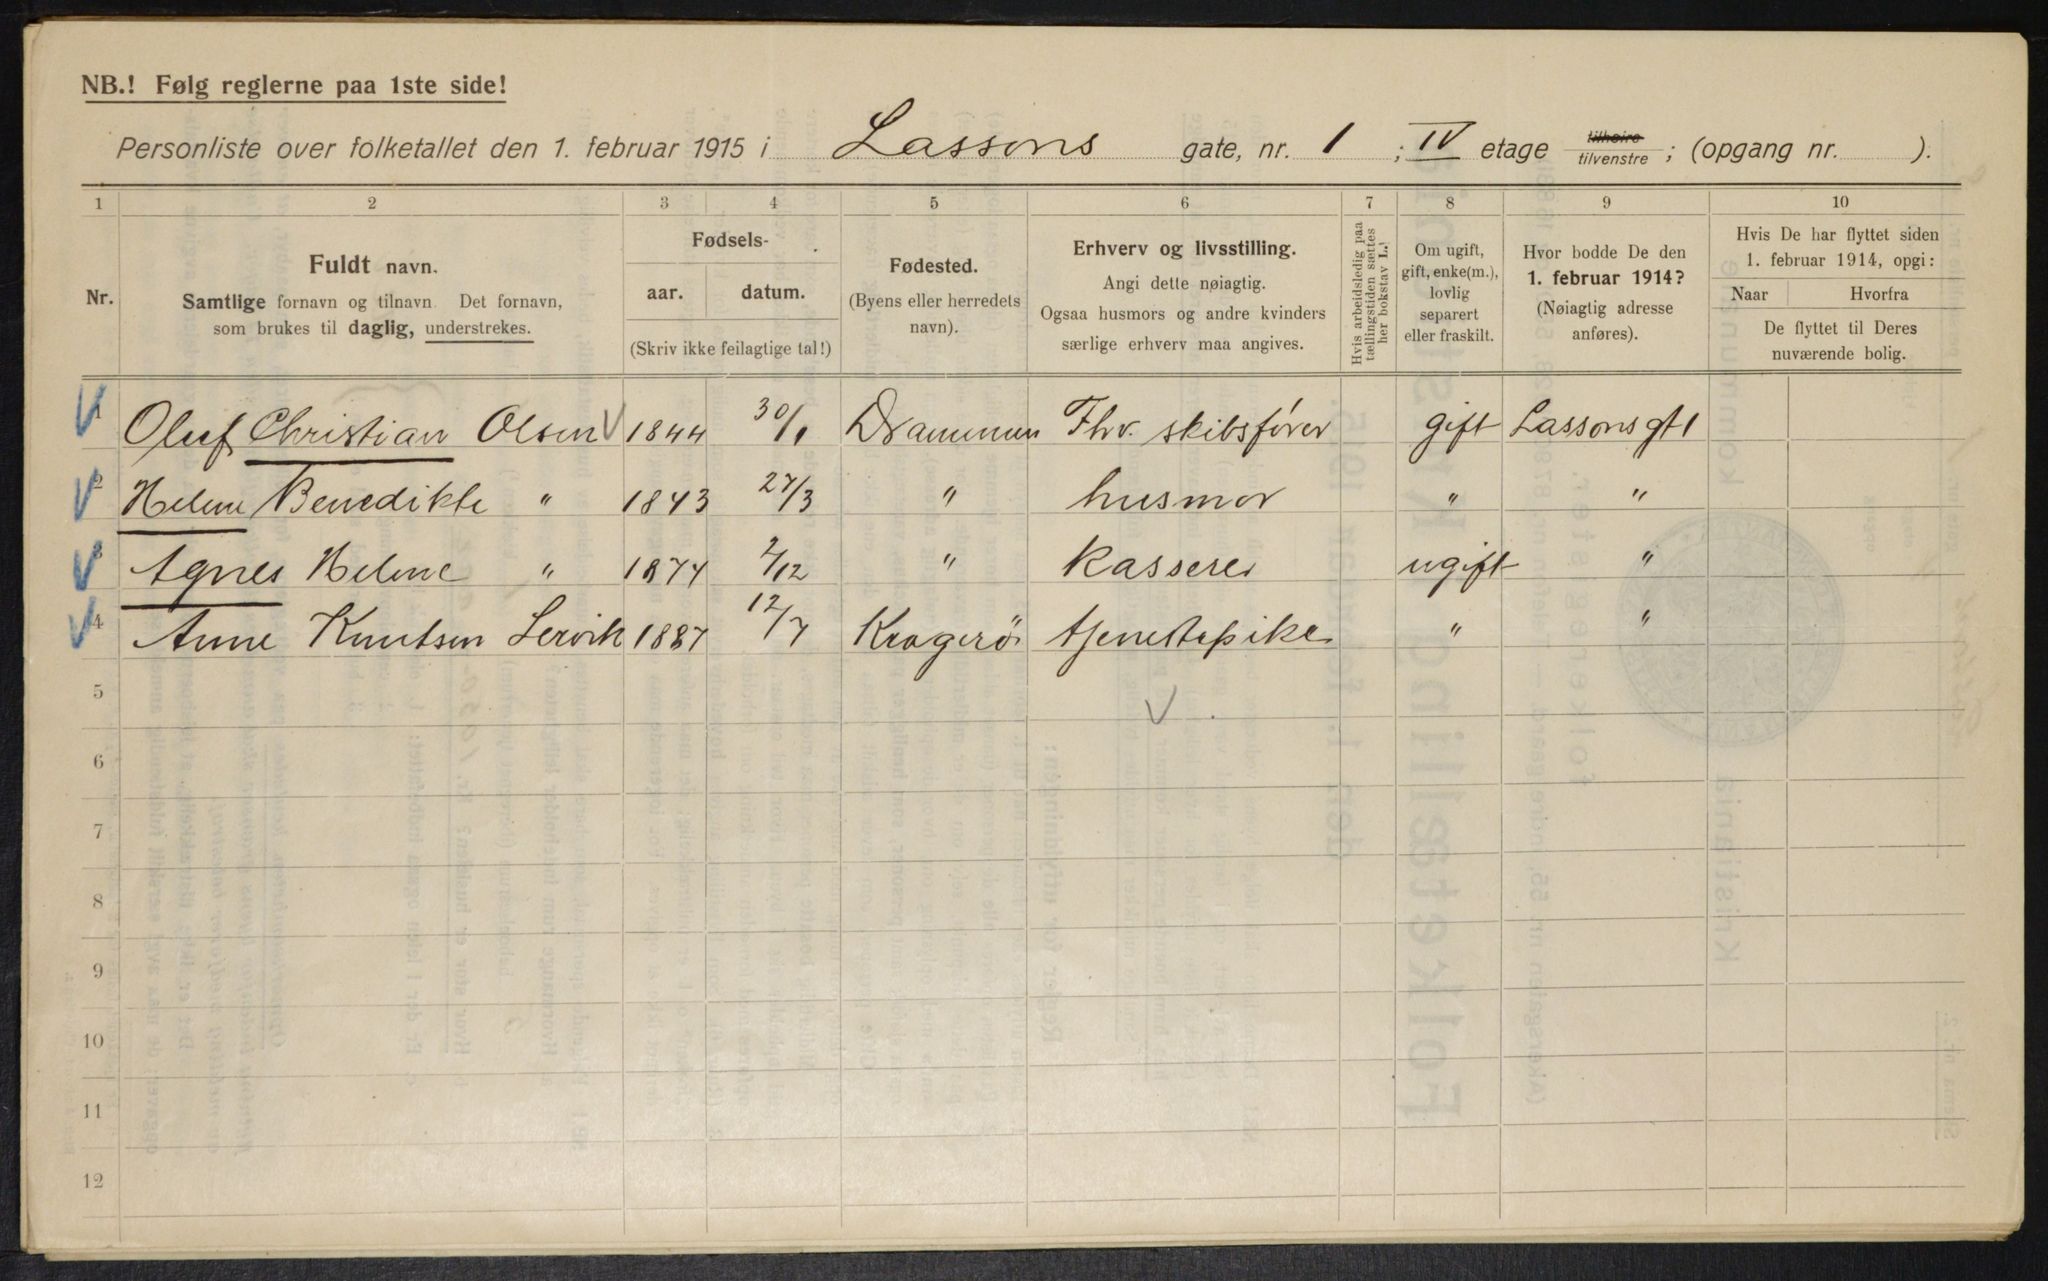 NB.! Følg reglerne paa 1ste side!
Personliste over folketallet den 1. februar 1915 i Lassons gate, nr. 1 ; IV etage tilhøire tilvenstre ; (opgang nr. ).
1 2 3 4 5 6 7 8 9 10
Nr.
Fuldt navn.
Samtlige fornavn og tilnavn. Det fornavn,
som brukes til daglig, understrekes.
Fødsels-
aar. datum.
(Skriv ikke feilagtige tal!)
Fødested.
(Byens eller herredets
navn).
Erhverv og livsstilling.
Angi dette nøiagtig.
Ogsaa husmors og andre kvinders
særlige erhverv maa angives.
Hvis arbeidsledig paa
tællingstiden sættes
her bokstav L.!
Om ugift,
gift, enke(m.),
lovlig
separert
eller fraskilt.
Hvor bodde De den
1. februar 1914?
(Nøiagtig adresse
anføres).
Hvis De har flyttet siden
1. februar 1914, opgi:
Naar Hvorfra
De flyttet til Deres
nuværende bolig.
1 Oluf Christian Olsen 1844 30/1 Drammen Fhv. skibsfører gift Lassonsgt 1
2 Helene Benedikte " 1843 27/3 " husmor " "
3 Agnes Helene " 1874 2/12 " Kasserer ugift "
4 Anne Knutsen Lervik 1887 12/7 Kragerö tjenestepike " "
5
6
7
8
9
10
11
12